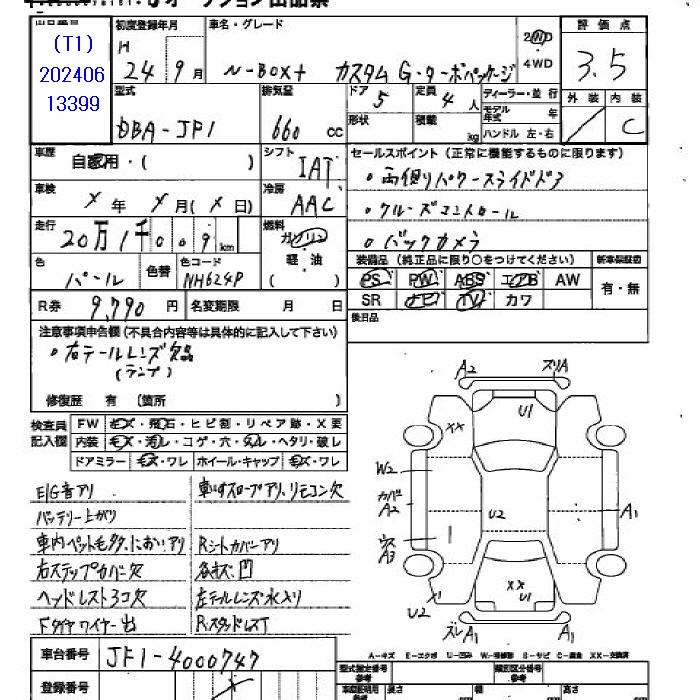 (T1)
202406
13399
初度登録年月
H
24 年 9 月
車名・グレード
N-BOX+ カスタム G・ターボパッケージ
2WD
4WD
評価点
3.5
外装 内装
C
型式
DBA-JF1
排気量
660 cc
ドア 5
定員 4 人
形状
積載 kg
ディーラー・並行
モデル年式 年
ハンドル 左・右
車歴
自家用・( )
シフト
IAT
セールスポイント (正常に機能するものに限ります)
・両側りパワースライドドア
・クルーズコントロール
・バックカメラ
車検
X 年 X 月(X 日)
冷房
AAC
走行
20万1千009 km
燃料
ガソリン
軽・油
( )
色
パール
色替
色コード
NH624P
装備品 (純正品に限り○をつけてください)
新車保証書
PS PW ABS エアB AW
SR ナビ TV カワ
有・無
R券 9,790 円
名変期限 月 日
後日品
注意事項申告欄 (不具合内容等は具体的に記入して下さい)
・右テールレンズ欠品
(ランプ)
修復歴 有 (箇所 )
検査員
記入欄
FW キズ・飛石・ヒビ割・リペア跡・X要
内装 キズ・汚レ・コゲ・穴・ヌレ・ヘタリ・破レ
ドアミラー キズ・ワレ
ホイール・キャップ キズ・ワレ
E/G音アリ
車いすスロープアリ、リモコン欠
バッテリー上がり
車内ペット毛多ク、においアリ
Rシートカバーアリ
右ステップカバー欠
各キズ凹
ヘッドレスト3コ欠
左テールレンズ水入り
Fタイヤワイヤー出
RスタッドレスT
A2
ズリA
U1
XX
W2
カバー
A2
U2
A1
ウス
A3
XX
U1
X1
U2
ズレA1
A1
A-キズ E-エクボ U-凹み W-補修跡 S-サビ C-腐食 XX-交換済
車台番号
JF1-4000747
登録番号
型式指定番号
参考
類別区分番号
参考
長さ
幅
高さ